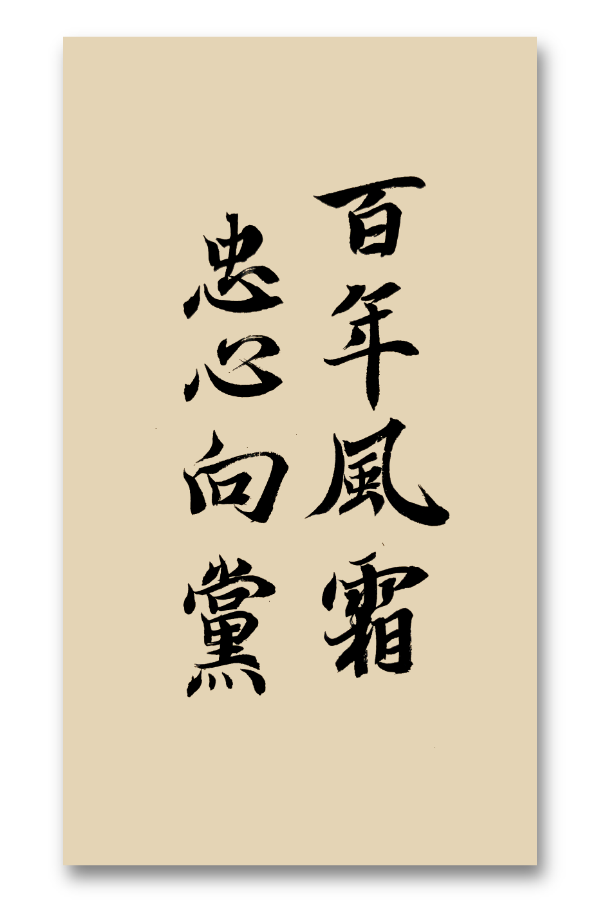 百年風霜
忠心向黨